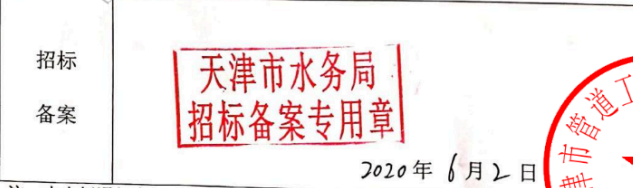 招标
备案
天津市水务局
招标备案专用章
2020年6月2日
津市管道工